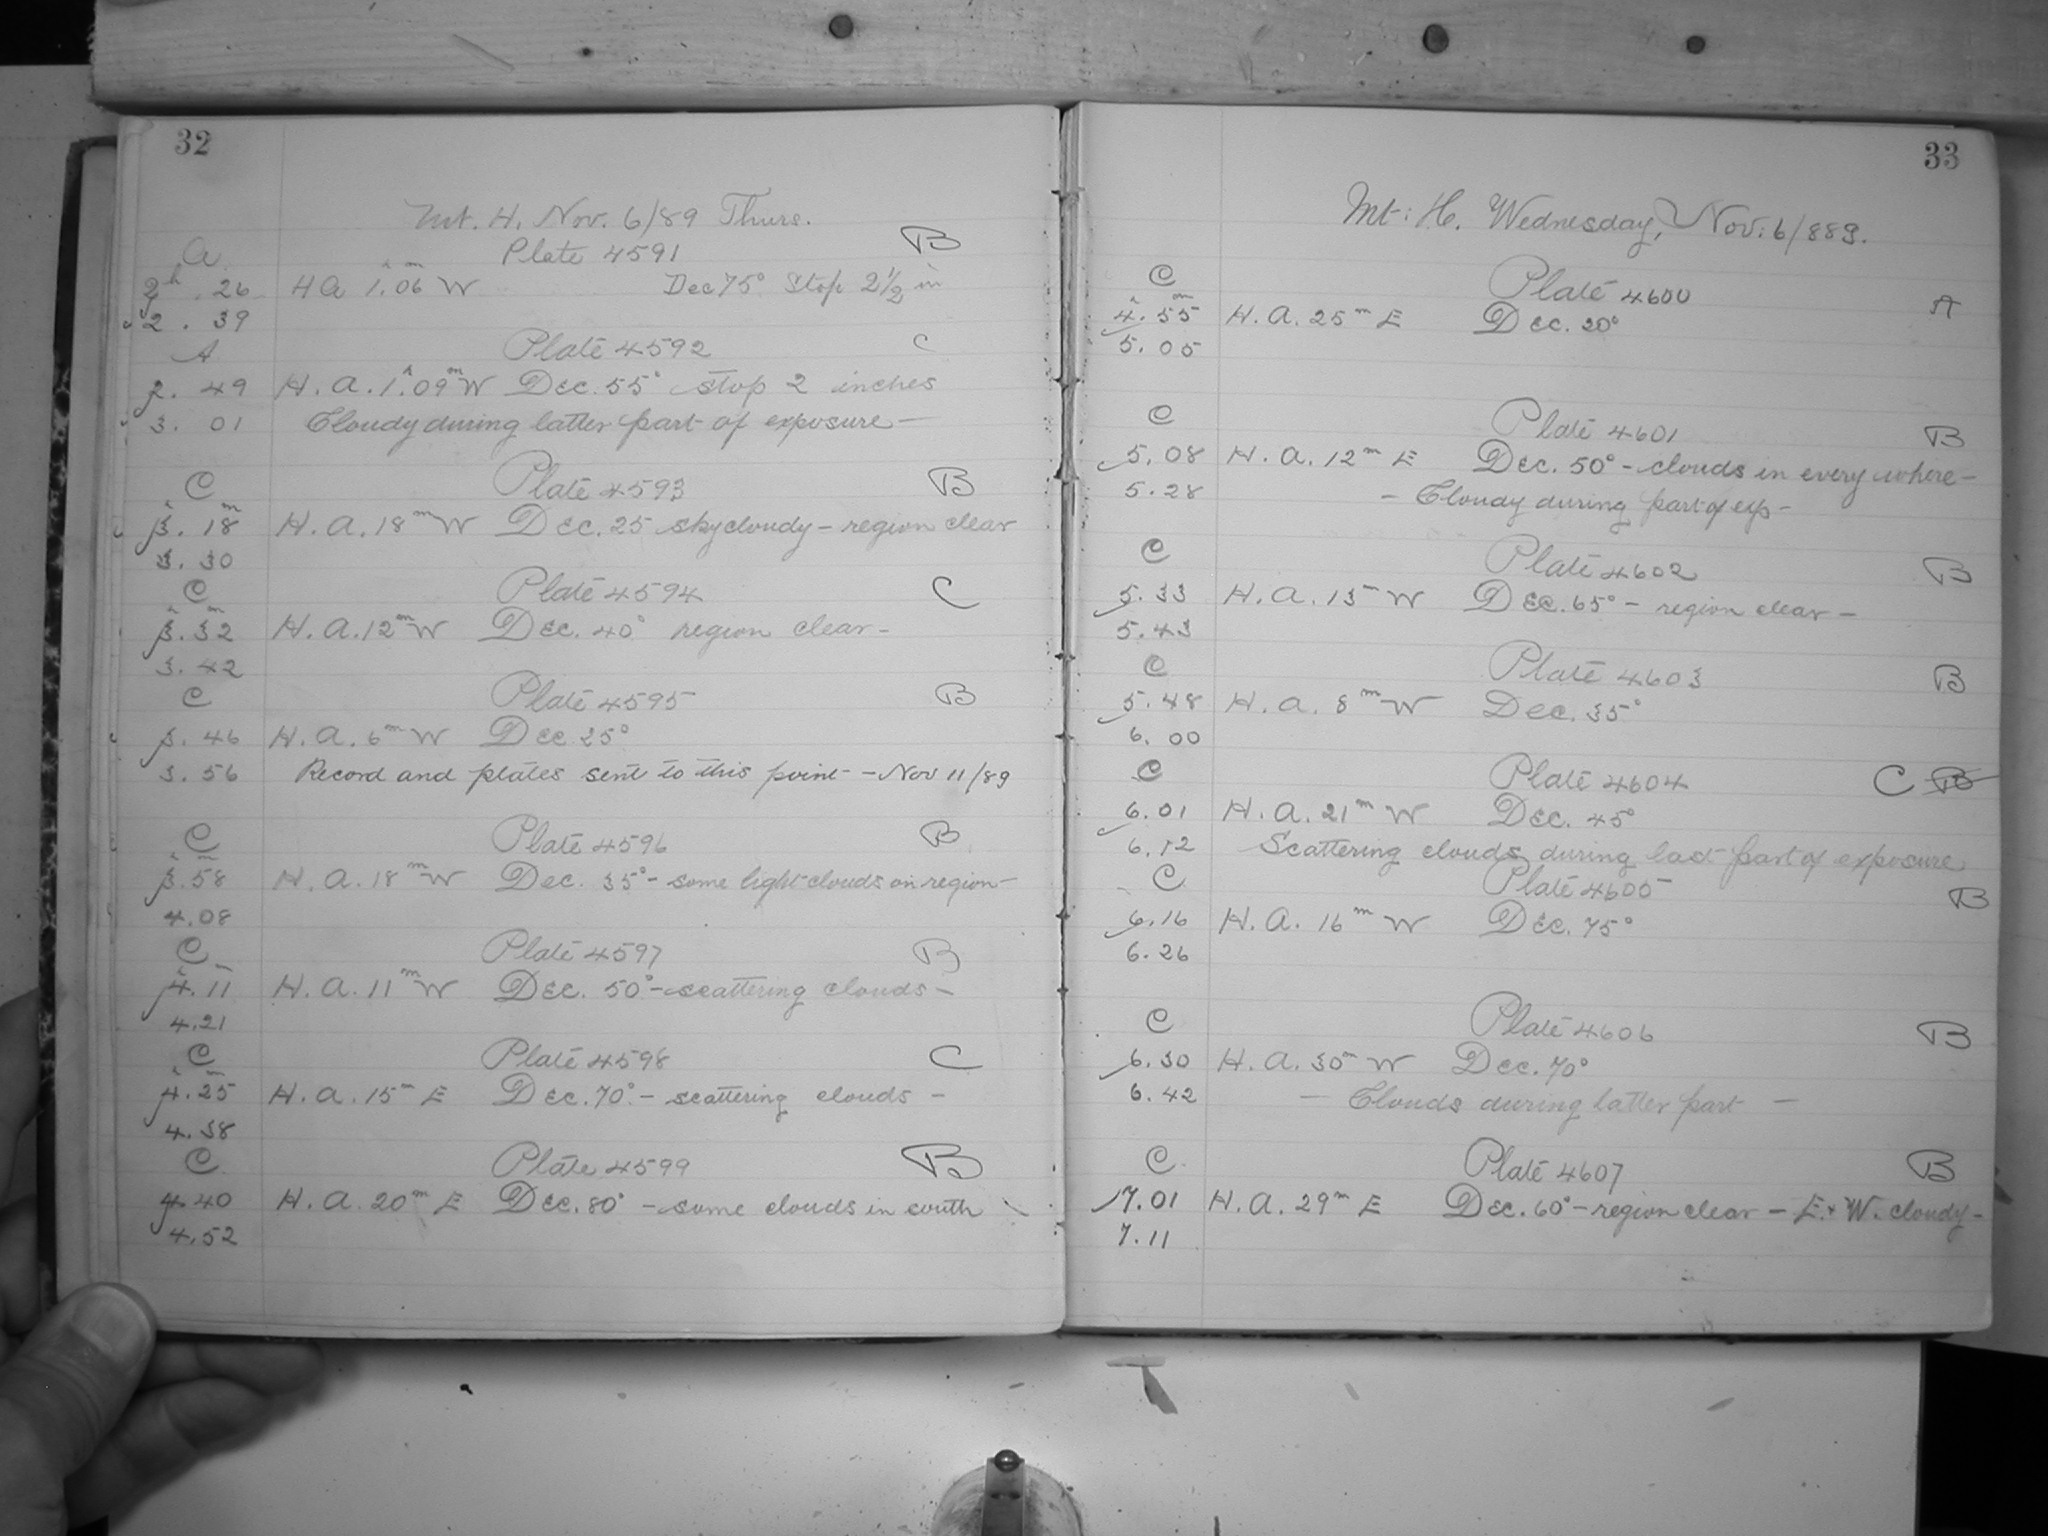 32
Mt. H. Nov. 6/89 Thurs.
a Plate 4591 B
2h.26 H a 1h.06m W Dec 75° Stop 2½ in
2.39
A Plate 4592 C
2.49 H.a.1h.09m W Dec.55° stop 2 inches
3.01 Cloudy during latter part of exposure—
C Plate 4593 B
3h.18m H.a.18m W Dec.25 sky cloudy – region clear
3.30
C Plate 4594 C
3h.32m H.a.12m W Dec. 40° region clear –
3.42
C Plate 4595 B
3.46 H.a.6m W Dec 25°
3.56 Record and plates sent to this point – Nov 11/89
C Plate 4596 B
3h.58m H.a.18m W Dec. 35° – some light clouds on region –
4.08
C Plate 4597 B
4h.11m H.a.11m W Dec. 50° – scattering clouds –
4.21
C Plate 4598 C
4h.25m H.a.15m E Dec.70° – scattering clouds –
4.38
C Plate 4599 B
4.40 H.a.20m E Dec.80° – some clouds in south
4.52
33
Mt: H. Wednesday, Nov: 6/889.
C Plate 4600 A
4h.55m H.a.25m E Dec. 20°
5.05
C Plate 4601 B
5.08 H.a.12m E Dec. 50° – clouds in every where –
5.28 – Cloudy during part of exp –
C Plate 4602 B
5.33 H.a.15 W Dec.65° – region clear –
5.43
C Plate 4603 B
5.48 H.a. 8m W Dec. 35°
6.00
C Plate 4604 C B
6.01 H.a.21m W Dec. 45°
6.12 Scattering clouds during last part of exposure
C Plate 4605 B
6.16 H.a. 16m W Dec. 75°
6.26
C Plate 4606 B
6.30 H.a.30m W Dec.70°
6.42 – Clouds during latter part –
C Plate 4607 B
7.01 H.a.29m E Dec.60° – region clear – E. & W. cloudy –
7.11